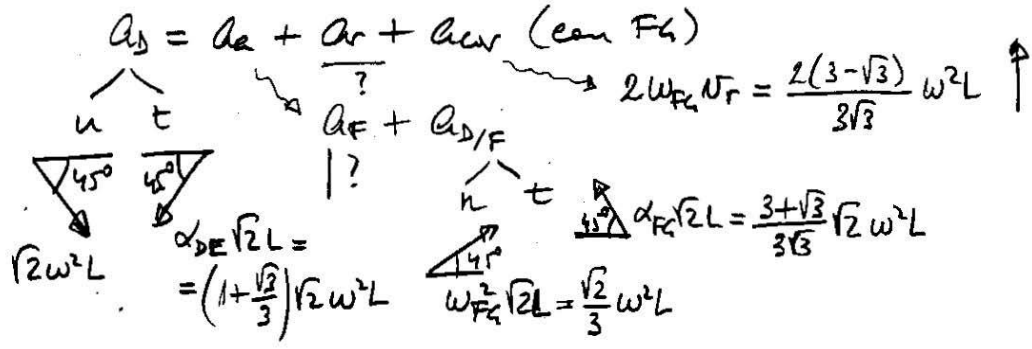 a_D = a_a + a_r + a_cor (con FG)
?
2ω_FG v_r = 2(3-√3)/3√3 ω²L
n t
a_F + a_D/F
?
45° 45°
n t
√2ω²L
α_DE √2L =
= (1+√3/3)√2ω²L
45°
ω²_FG √2L = √2/3 ω²L
45° α_FG √2L = 3+√3/3√3 √2 ω²L